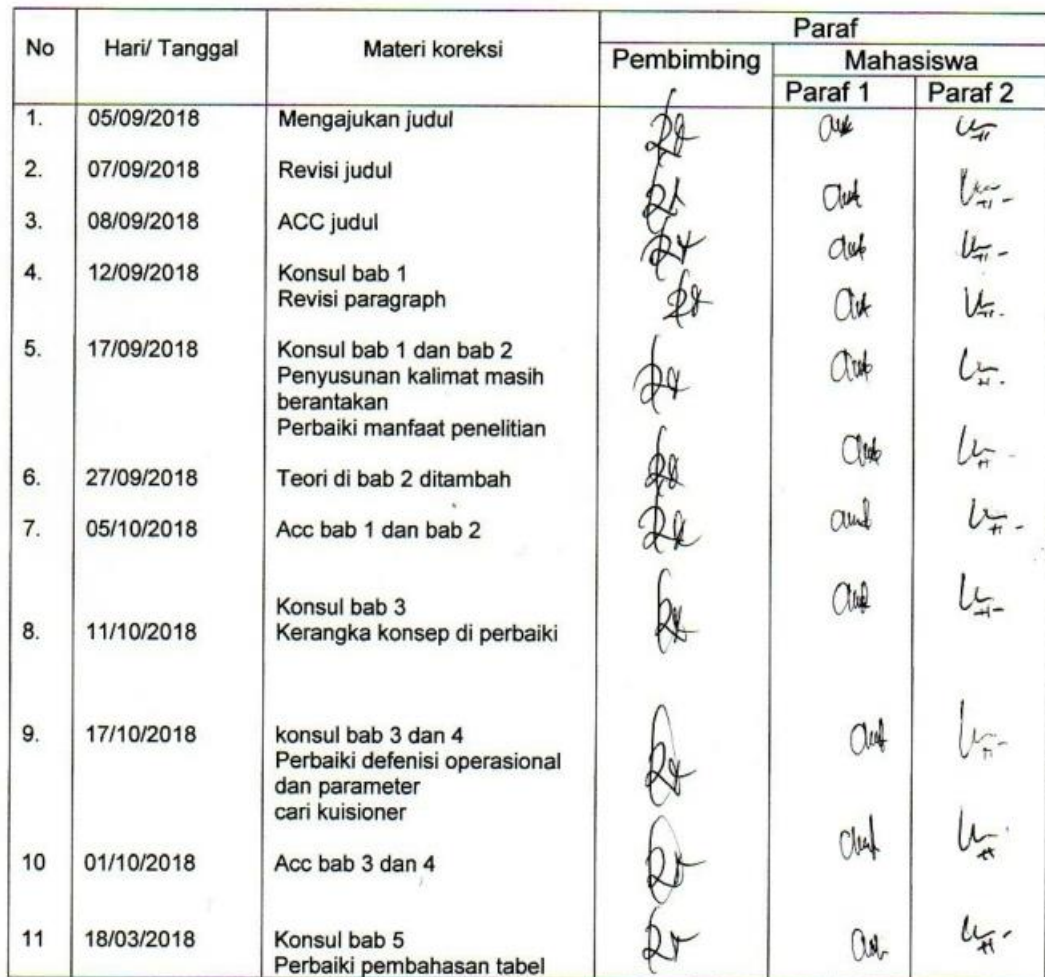 No Hari/ Tanggal Materi koreksi Paraf
Pembimbing Mahasiswa
Paraf 1 Paraf 2
1. 05/09/2018 Mengajukan judul
2. 07/09/2018 Revisi judul
3. 08/09/2018 ACC judul
4. 12/09/2018 Konsul bab 1
Revisi paragraph
5. 17/09/2018 Konsul bab 1 dan bab 2
Penyusunan kalimat masih
berantakan
Perbaiki manfaat penelitian
6. 27/09/2018 Teori di bab 2 ditambah
7. 05/10/2018 Acc bab 1 dan bab 2
Konsul bab 3
8. 11/10/2018 Kerangka konsep di perbaiki
9. 17/10/2018 konsul bab 3 dan 4
Perbaiki defenisi operasional
dan parameter
cari kuisioner
10 01/10/2018 Acc bab 3 dan 4
11 18/03/2018 Konsul bab 5
Perbaiki pembahasan tabel